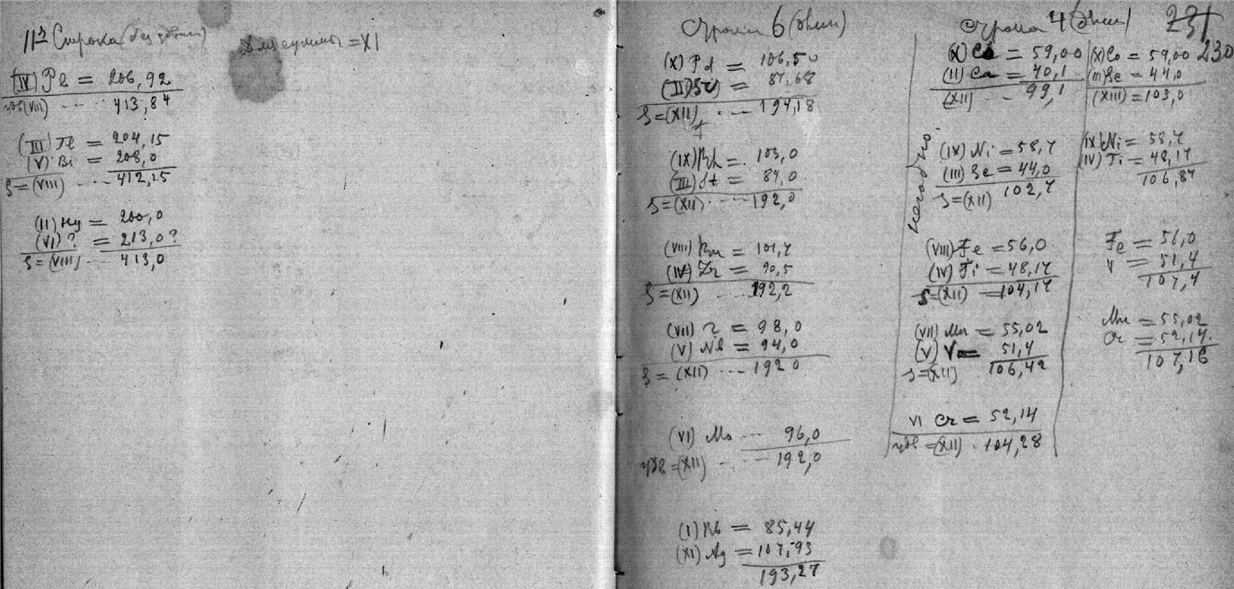 11я Строка (без
для суммы = XI
(IV) Pb = 206,92
удв (VIII) ---- 413,84
(III) Tl = 204,15
(V) Bi = 208,0
S = (VIII) ---- 412,15
(II) Hg = 200,0
(VI) ? = 213,0?
S = (VIII) --- 413,0
Строка 6
(X) Pd = 106,50
= 87,68
S = (XII) --- 194,18
(IX) Rh = 103,0
(III) = 89,0
S = (XII) --- 192,0
(VIII) Ru = 101,7
(IV) Zr = 90,5
S = (XII) --- 192,2
(VII) ? = 98,0
(V) Nb = 94,0
S = (XII) --- 192,0
(VI) Mo --- 96,0
удв = (XII) --- 192,0
(I) Rb = 85,44
(XI) Ag = 107,93
193,27
Строка 4
231
230
(X) Co = 59,00
(II) Ca = 40,1
(XII) -- 99,1
(IX) Ni = 58,7
(III) Sc = 44,0
S = (XII) 102,7
(VIII) Fe = 56,0
(IV) Ti = 48,17
S = (XII) = 104,17
(VII) Mn = 55,02
(V) V = 51,4
S = (XII) 106,42
VI Cr = 52,14
удв = (XII) - 104,28
(X) Co = 59,00
(III) Sc = 44,0
(XIII) = 103,0
(IX) Ni = 58,7
(IV) Ti = 48,17
106,87
Fe = 56,0
V = 51,4
107,4
Mn = 55,02
Cr = 52,14
107,16